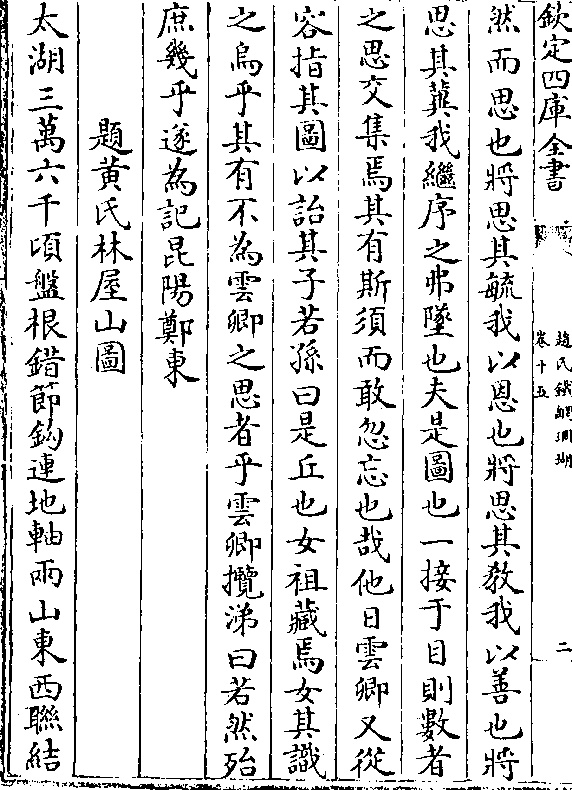 欽定四庫全書
趙氏鐵網珊瑚
卷十五
二
然而思也將思其毓我以恩也將思其教我以善也將
思其冀我繼序之弗墜也夫是圖也一接于目則數者
之思交集焉其有斯須而敢忽忘也哉他日雲卿又從
容指其圖以詒其子若孫曰是丘也女祖藏焉女其識
之烏乎其有不為雲卿之思者乎雲卿攬涕曰若然殆
庶幾乎遂為記昆陽鄭東
題黄氏林屋山圖
太湖三萬六千頃盤根錯節鈎連地軸兩山東西聯結